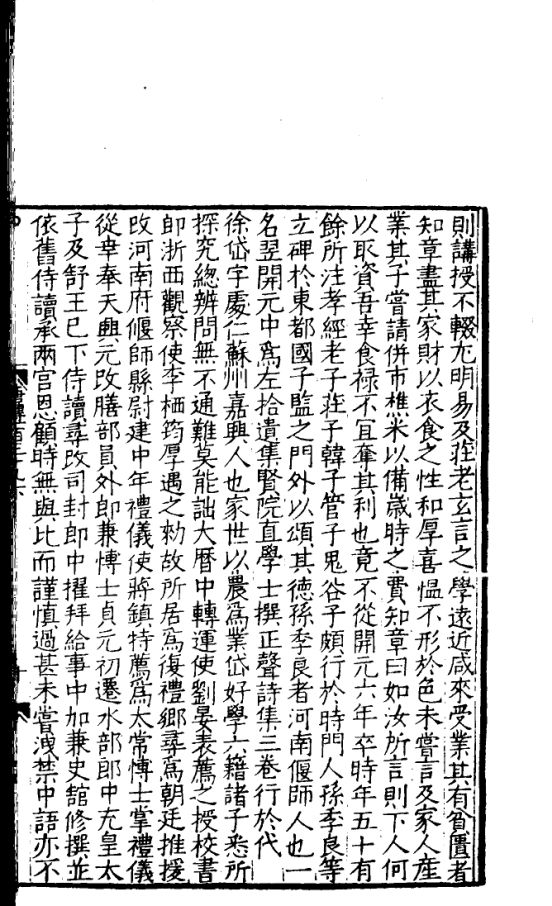 則講授不輟尤明易及莊老玄言之學遠近咸來受業其有貧匱者
知章盡其家財以衣食之性和厚喜慍不形於色未嘗言及家人産
業其子嘗請併市樵米以備歲時之費知章曰如汝所言則下人何
以取資吾幸食禄不宜奪其利也竟不從開元六年卒時年五十有
餘所注孝經老子莊子韓子管子鬼谷子頗行於時門人孫季良等
立碑於東都國子監之門外以頌其德孫季良者河南偃師人也一
名翌開元中爲左拾遺集賢院直學士撰正聲詩集三卷行於代
徐岱字處仁蘇州嘉興人也家世以農爲業岱好學六籍諸子悉所
探究緫辨問無不通難莫能詘大曆中轉運使劉晏表薦之授校書
郎浙西觀察使李栖筠厚遇之勑故所居爲復禮鄉尋爲朝廷推援
改河南府偃師縣尉建中年禮儀使蔣鎮特薦爲太常博士掌禮儀
從幸奉天興元改膳部員外郎兼博士貞元初遷水部郎中充皇太
子及舒王已下侍讀尋改司封郎中擢拜給事中加兼史舘修撰並
依舊侍讀承兩宫恩顧時無與比而謹慎過甚未嘗洩禁中語亦不